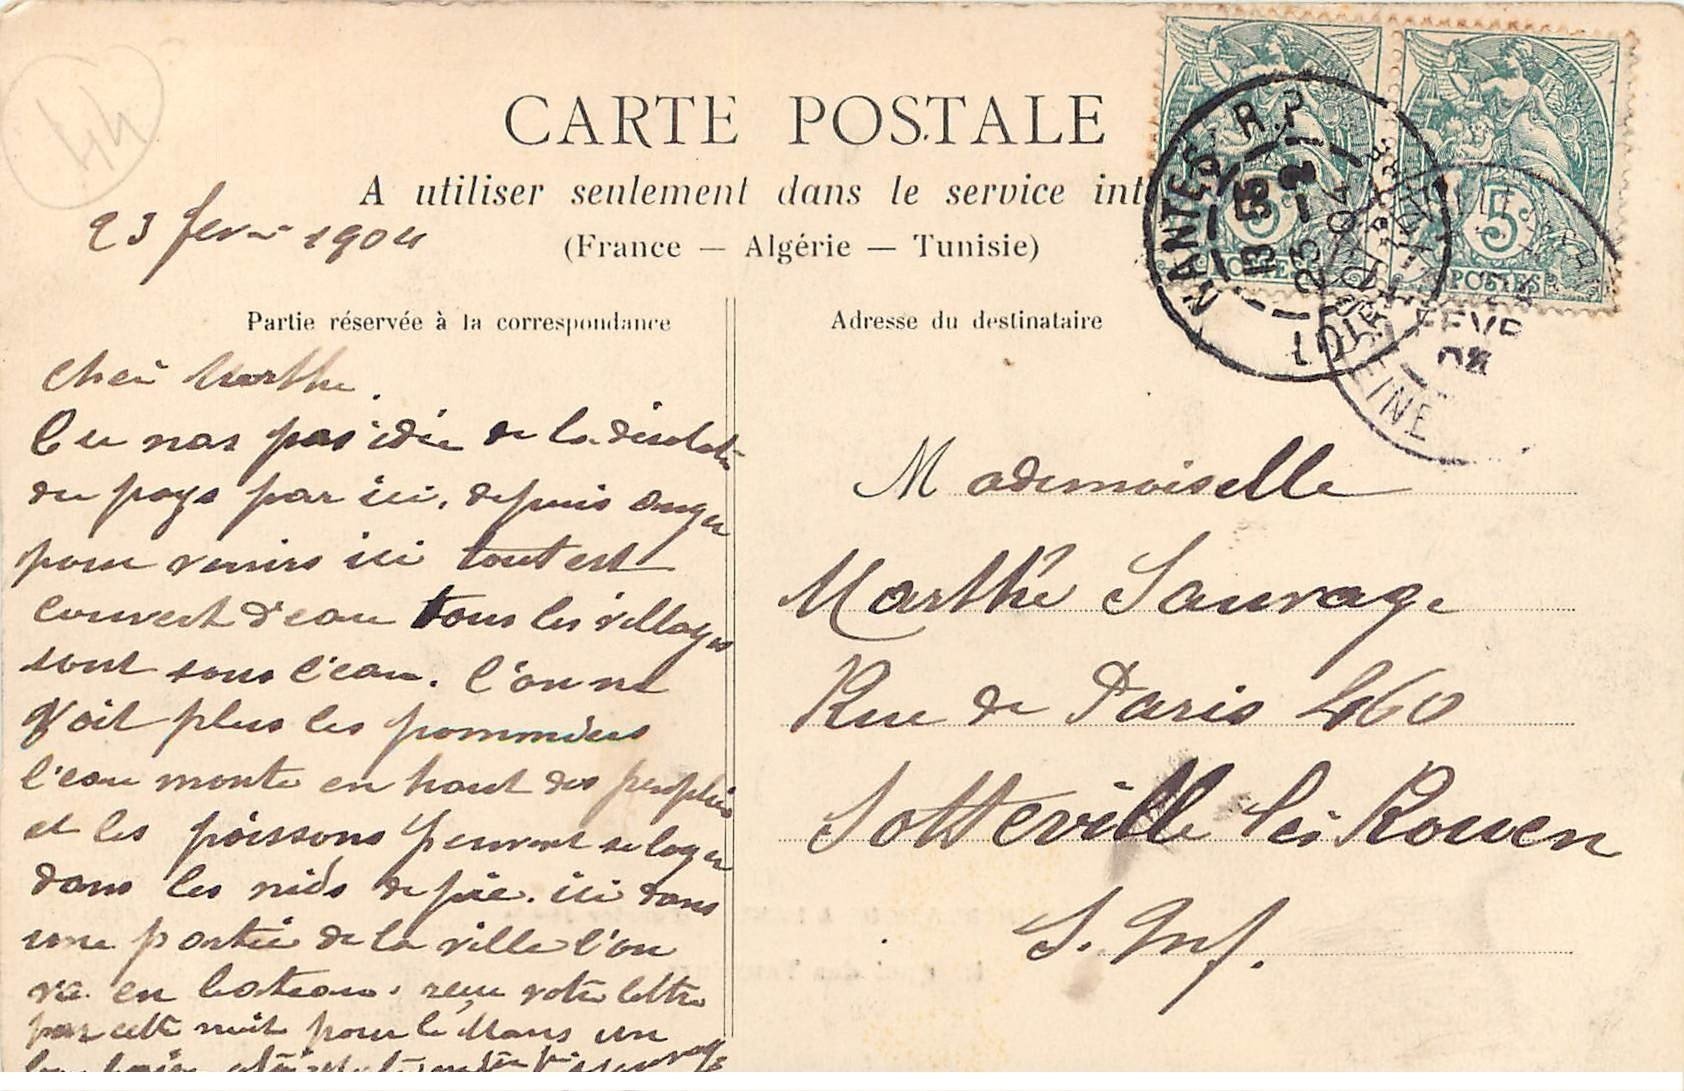 44
CARTE POSTALE
A utiliser seulement dans le service int
(France — Algérie — Tunisie)
23 fevr 1904
Partie réservée à la correspondance
cher Marthe.
Tu nas pas idée de la désolation
du pays par ici, depuis Anger
pour venirs ici tout est
couvert d'eau tous les villages
sont sous l'eau. l'on ne
voit plus les pommiers
l'eau monte en haut des peupliers
et les poissons peuvent se loger
dans les nids de pie. ici dans
une partie de la ville l'on
va en bateau. reçu votre lettre
par cette nuit pour le Mans un
Adresse du destinataire
Mademoiselle
Marthe Sauvage
Rue de Paris 460
Sotteville lès Rouen
S. Inf.
NANTES R.P.
13 55
23 -2
04
LOIRE
5c 5c
POSTES
FEVR
04